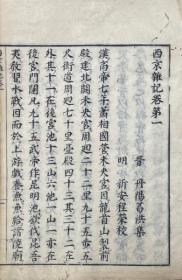 西京雜記卷第一
晉 丹陽葛洪集
明 新安程榮校
漢高帝七年蕭相國營未央宮因龍首山製前
殿建北闕未央宮周迴二十二里九十五步五
尺街道周迴七十里臺殿四十三其三十二在
外其十一在後宮池十三山六池一山一亦在
後宮門闥凡九十五武帝作昆明池欲伐昆吾
夷教習水戰因而於上游戲養魚魚給諸陵廟